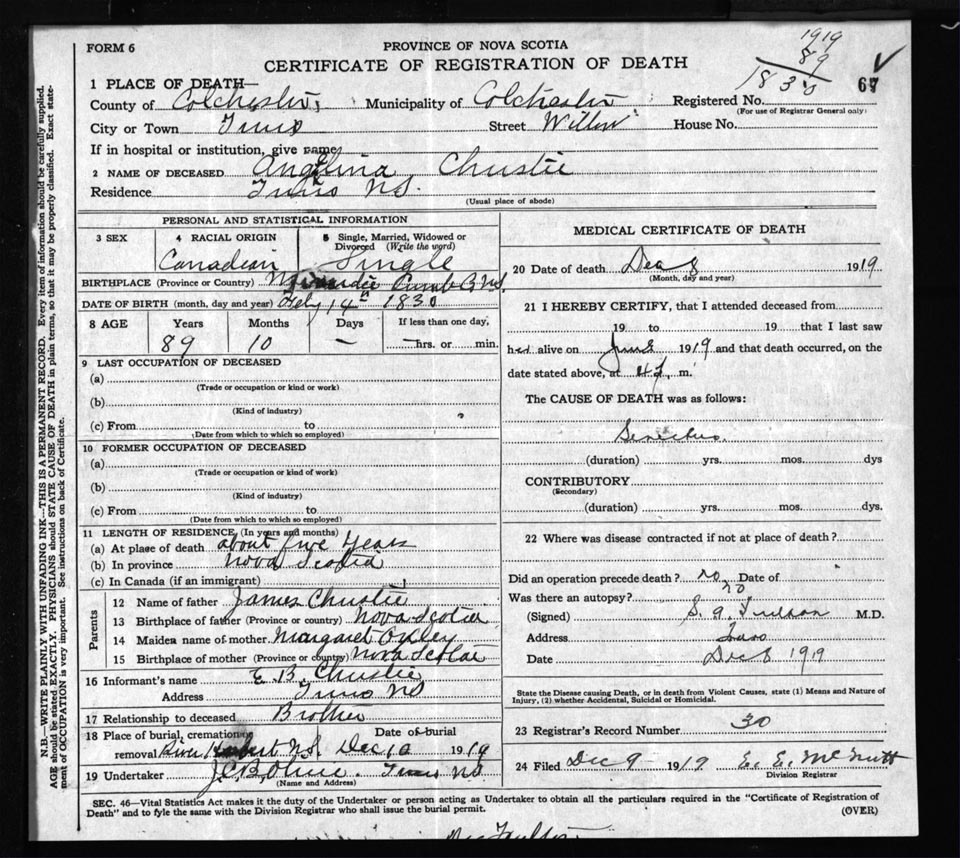 FORM 6
PROVINCE OF NOVA SCOTIA
CERTIFICATE OF REGISTRATION OF DEATH
1919
89
1830
67
1 PLACE OF DEATH—
County of Colchester Municipality of Colchester Registered No.
(For use of Registrar General only)
City or Town Truro Street Willow House No.
If in hospital or institution, give name
2 NAME OF DECEASED Angelina Christie
Residence Truro N.S.
(Usual place of abode)
PERSONAL AND STATISTICAL INFORMATION
3 SEX 4 RACIAL ORIGIN 5 Single, Married, Widowed or Divorced (Write the word)
Canadian Single
BIRTHPLACE (Province or Country)
DATE OF BIRTH (month, day and year) Feby 14th 1830
8 AGE Years Months Days If less than one day,
89 10 — — hrs. or min.
9 LAST OCCUPATION OF DECEASED
(a)
(Trade or occupation or kind or work)
(b)
(Kind of industry)
(c) From to
(Date from which to which so employed)
10 FORMER OCCUPATION OF DECEASED
(a)
(Trade or occupation or kind of work)
(b)
(Kind of industry)
(c) From to
(Date from which to which so employed)
11 LENGTH OF RESIDENCE (In years and months)
(a) At place of death about five years
(b) In province Nova Scotia
(c) In Canada (if an immigrant)
Parents
12 Name of father James Christie
13 Birthplace of father (Province or country) Nova Scotia
14 Maiden name of mother Margaret Oxley
15 Birthplace of mother (Province or country) Nova Scotia
16 Informant's name E. B. Christie
Address Truro NS
17 Relationship to deceased Brother
18 Place of burial, cremation or removal River Hebert N.S. Date of burial Dec 10 1919
19 Undertaker Truro NS
(Name and Address)
MEDICAL CERTIFICATE OF DEATH
20 Date of death Dec 8 1919
(Month, day and year)
21 I HEREBY CERTIFY, that I attended deceased from
19 to 19 that I last saw
her alive on June 1919 and that death occurred, on the
date stated above, at m.
The CAUSE OF DEATH was as follows:
Senectus
(duration) yrs. mos. dys
CONTRIBUTORY
(Secondary)
(duration) yrs. mos. dys.
22 Where was disease contracted if not at place of death?
Did an operation precede death? no Date of
Was there an autopsy? no
(Signed) M.D.
Address Truro
Date Dec 8 1919
State the Disease causing Death, or in death from Violent Causes, state (1) Means and Nature of
Injury, (2) whether Accidental, Suicidal or Homicidal.
23 Registrar's Record Number 30
24 Filed Dec 9 1919 E. E. McNutt
Division Registrar
SEC. 46—Vital Statistics Act makes it the duty of the Undertaker or person acting as Undertaker to obtain all the particulars required in the "Certificate of Registration of
Death" and to fyle the same with the Division Registrar who shall issue the burial permit.
(OVER)
N.B.—WRITE PLAINLY WITH UNFADING INK—THIS IS A PERMANENT RECORD. Every item of information should be carefully supplied.
AGE should be stated EXACTLY. PHYSICIANS should STATE CAUSE OF DEATH in plain terms, so that it may be properly classified. Exact state-
ment of OCCUPATION is very important. See instructions on back of Certificate.